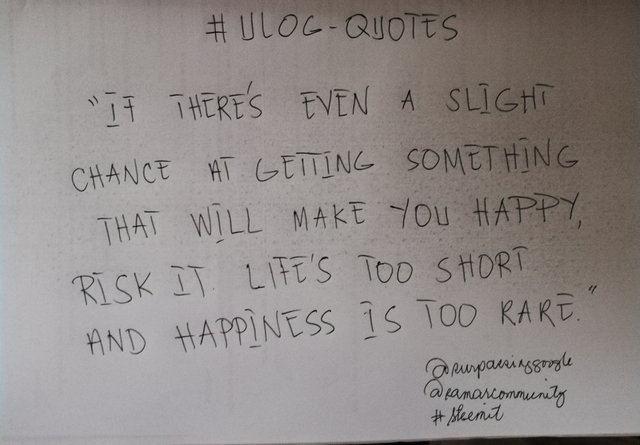 #ULOG-QUOTES
"IF THERE'S EVEN A SLIGHT
CHANCE AT GETTING SOMETHING
THAT WILL MAKE YOU HAPPY,
RISK IT. LIFE'S TOO SHORT
AND HAPPINESS IS TOO RARE."
@surpassinggoogle
@eamarcommunity
#steemit